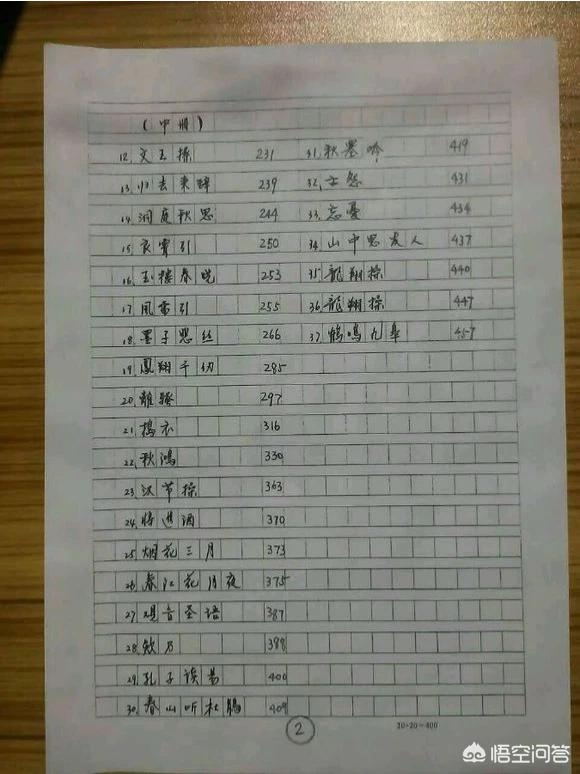 (中册)
12.文王操 231
13.归去来辞 239
14.洞庭秋思 244
15.良宵引 250
16.玉楼春晓 253
17.风雷引 255
18.墨子悲丝 266
19.鳳翔千仞 285
20.離骚 297
21.捣衣 316
22.秋鴻 330
23.汉节操 363
24.将进酒 370
25.烟花三月 373
26.春江花月夜 375
27.观音圣语 387
28.欸乃 388
29.孔子读易 400
30.春山听杜鹃 409
31.秋塞吟 419
32. 怨 431
33.忘憂 434
34.山中思友人 437
35.龍翔操 440
36.龍翔操 447
37.鹤鸣九皋 457
2
20×20=400
悟空问答